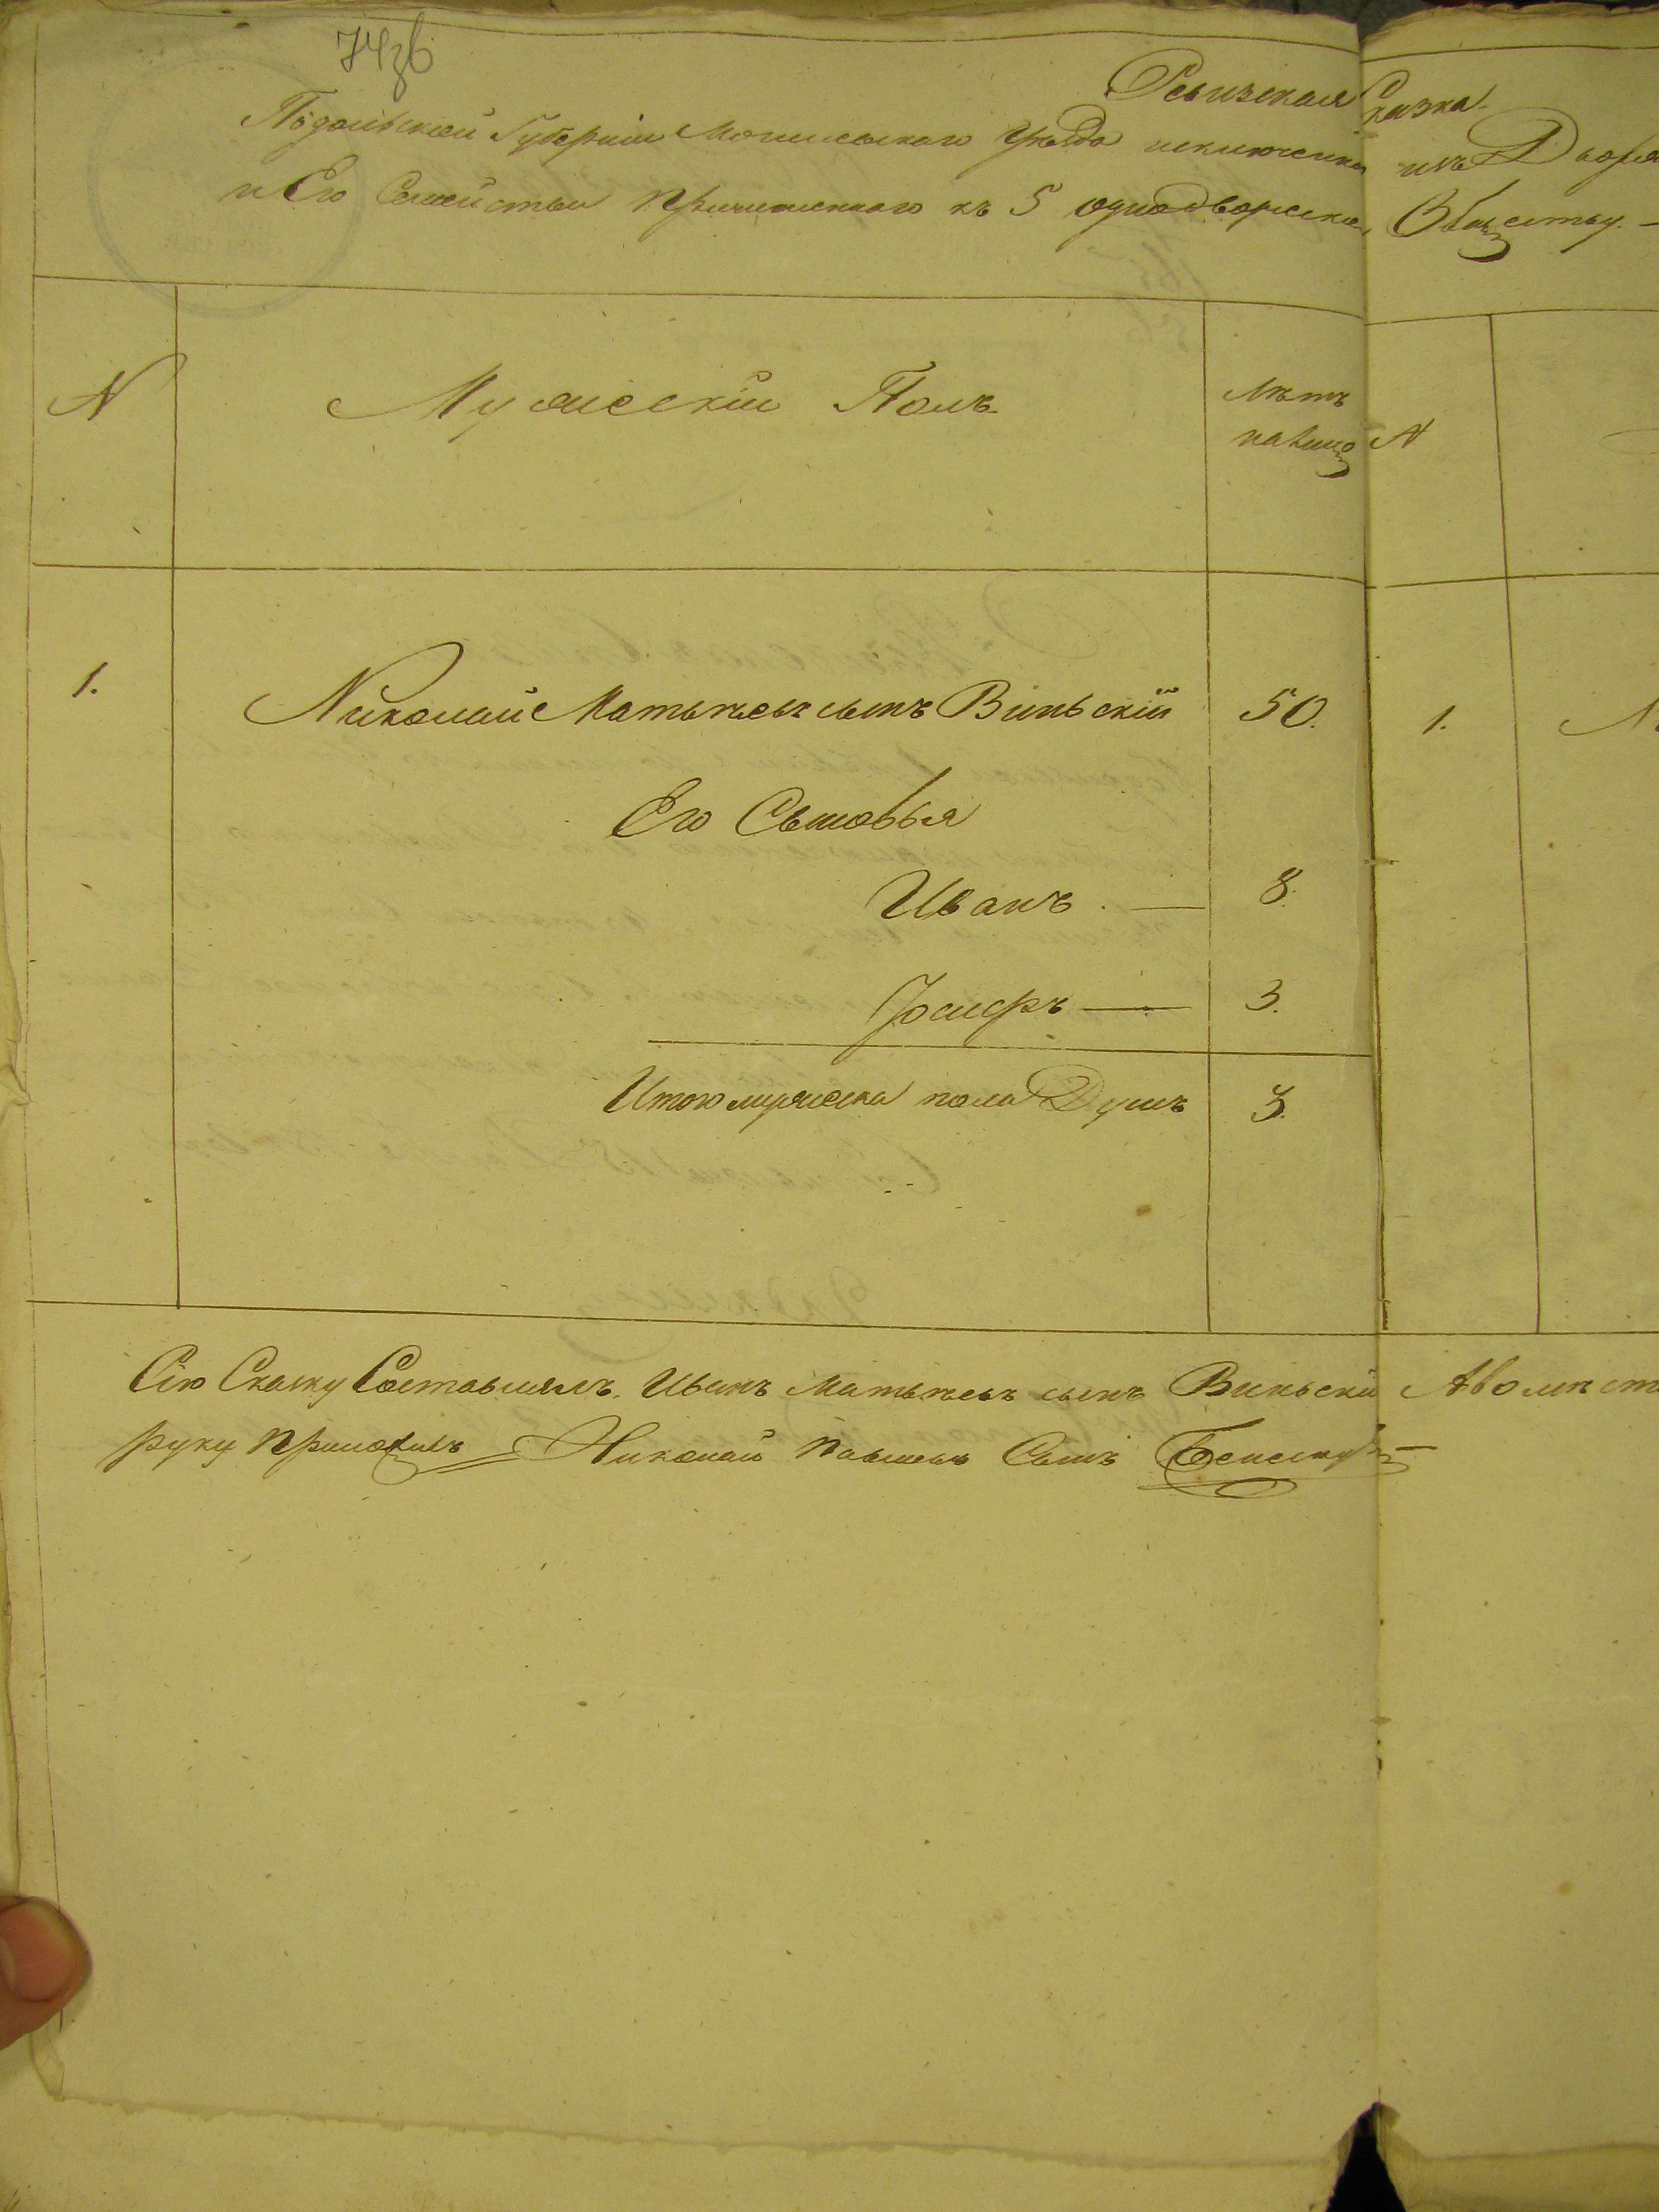 74зв
Ревизская Сказка.
Подольской Губерніи Могилевскаго Уѣзда исключеннаго изъ Дворя
и Его Семейства причисленнаго къ 5 однодворческому Обществу. —
N
Мужескій Полъ
Лѣтъ
налицо
N
1.
Николай Матвѣевъ сынъ Виньскій
50.
1.
Его Сыновья
Иванъ. —
8.
Іосифъ —
3.
Итого мужеска пола Душъ
3.
Сію Сказку Составлялъ. Иванъ Матвѣевъ сынъ Виньскій А вомѣст
руку приложилъ Николай Павловъ Сынъ